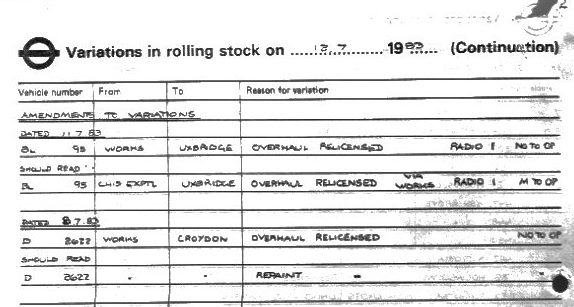 Variations in rolling stock on 13.7 1983 (Continuation)
Vehicle number From To Reason for variation
AMENDMENTS TO VARIATIONS
DATED 11.7.83
BL 95 WORKS UXBRIDGE OVERHAUL RELICENSED RADIO 1 NO TO OP
SHOULD READ :
BL 95 CHIS EXPTL UXBRIDGE OVERHAUL RELICENSED VIA WORKS RADIO 1 M TO OP
DATED 8.7.83
D 2622 WORKS CROYDON OVERHAUL RELICENSED NO TO OP
SHOULD READ
D 2622 " " REPAINT " "